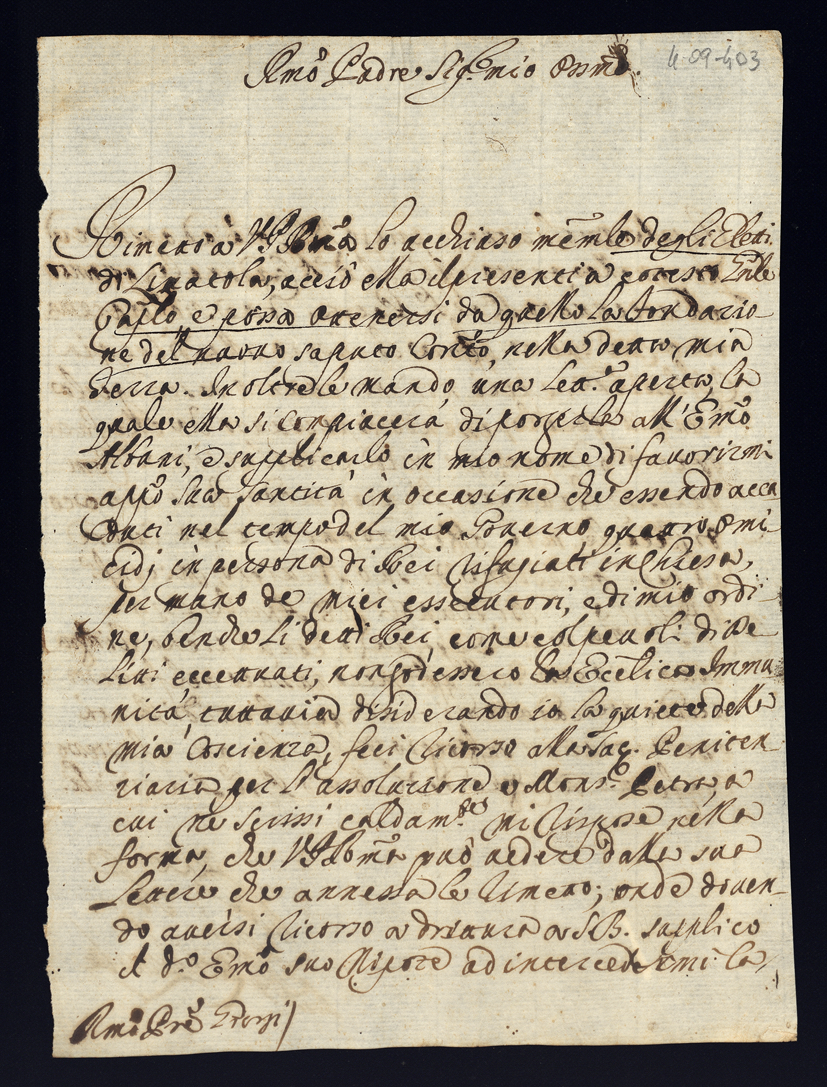 409-403
Rmo Padre Sigre mio Ossmo.
Rimetto à VS Rma lo acchiuso memle degli Eletti
di Limatola, acciò ella il presenti a cotesto
e possa ottenersi da quello la fondazio-
ne del nauuo saputo Conto, nella detta mia
Terra. Inoltre le mando una Letta aperta, la
quale ella si compiacerà di porgerla all'Emo
Albani, e supplicarlo in mio nome di favorirmi
appo Sua Santità in occasione che essendo acca
duti nel tempo del mio Governo quattro omi-
cidj in persona di Rei rifugiati in Chiesa,
per mano de miei essecutori, e di mio ordi
ne, benche li detti Rei, come colpevoli di De
litti eccettuati, non godessero la Ecclica Immu
nità, tuttavia disiderando io la quiete della
mia Coscienza, feci ricorso alla Sac. Peniten-
ziaria per l'assoluzione e Monsre Petra, a
cui ne scrissi caldamte, mi rispose nella
forma, che VS Rma può vedere dalla sua
Lettera che annessa le rimetto; onde doven-
do aversi ricorso a drittura a S.B. supplico
il do Emo suo Nipote ad intercedermi la
Rmo Pre